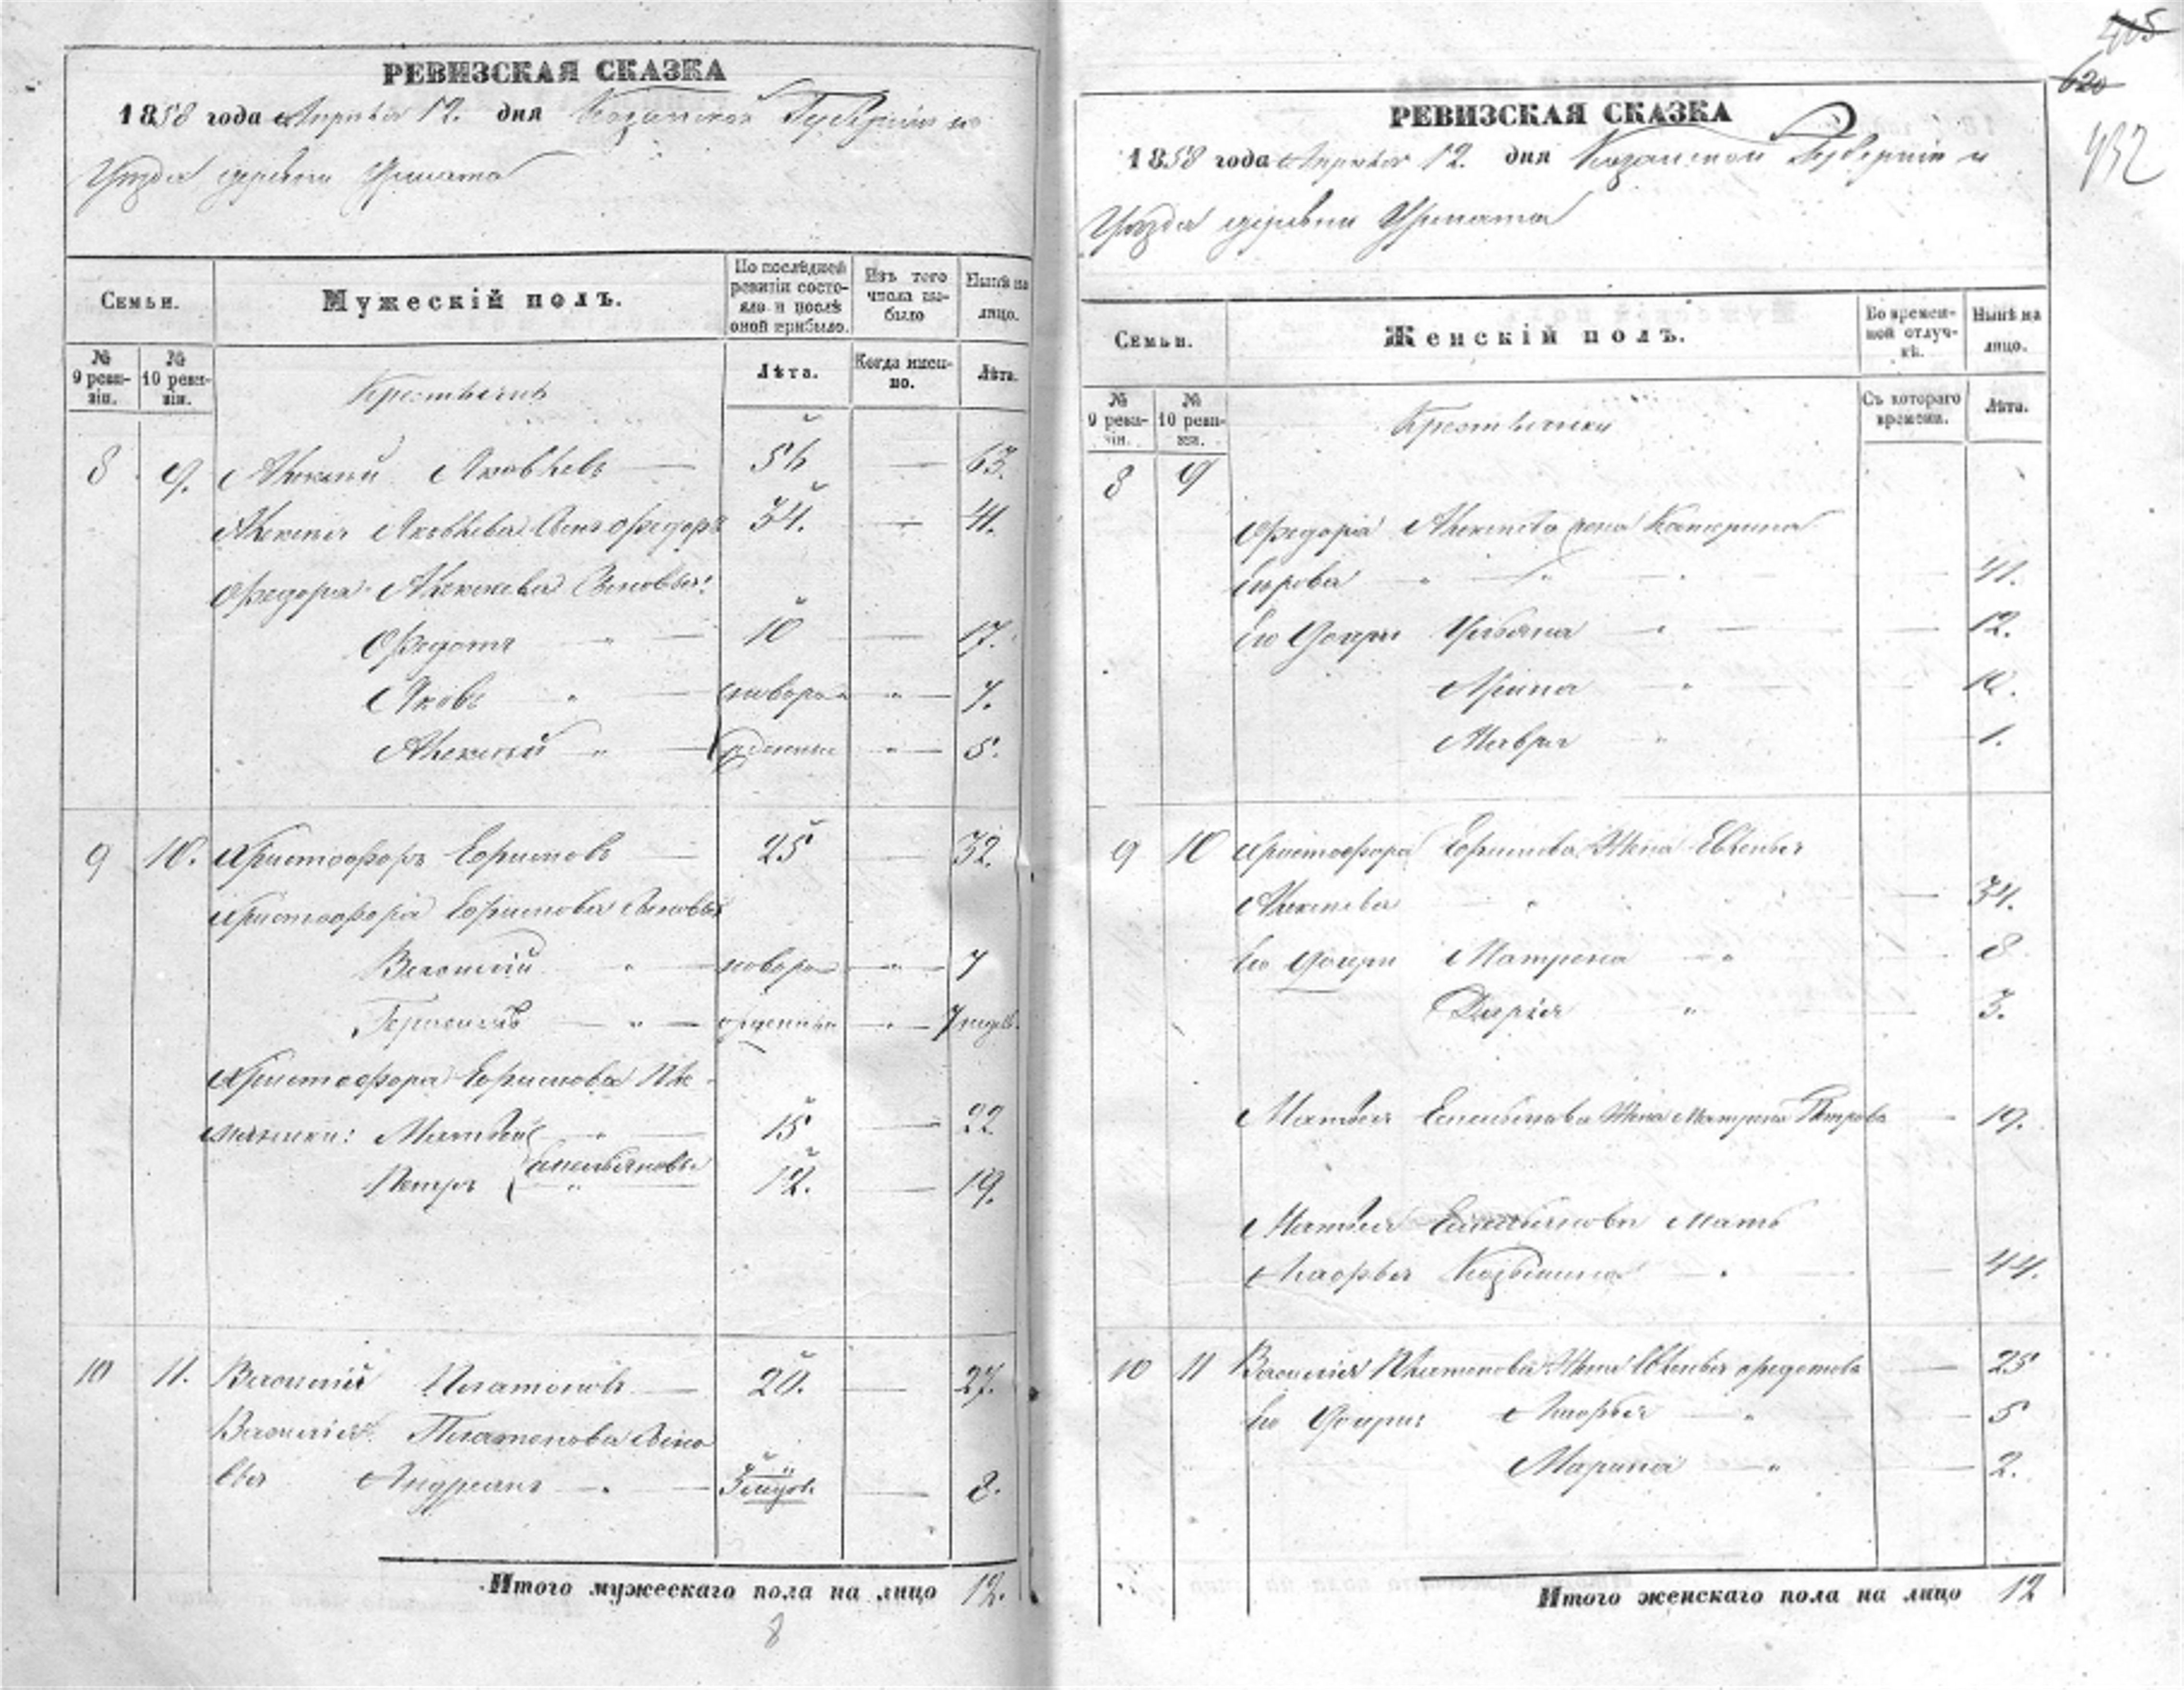 РЕВИЗСКАЯ СКАЗКА
1858 года Апреля 12. дня Казанской Губернии и
Уѣзда деревни
Семьи.
Мужескій полъ.
По послѣдней ревизіи состояло и послѣ оной прибыло.
Изъ того числа выбыло
Нынѣ на лицо.
№ 9 ревизіи.
№ 10 ревизіи.
Крестьянъ
Лѣта.
Когда именно.
Лѣта.
8 9. Алексѣй Яковлевъ — 56 — 63.
Алексѣя Яковлева сынъ Федоръ 34. — 41.
Федора Алексѣева сыновья:
Федотъ " — 10 — 17.
Яковъ " — новоро " — 7.
Алексѣй " — жденные " — 5.
9 10. Христофоръ Ефимовъ — 25 — 32.
Христофора Ефимова сыновья
Василій " новоро — " — 7
Герасимъ — " — жденные — " — 7 недѣль
Христофора Ефимова пле-
мянники: Матвѣй " — 15 — 22
Петръ Емельяновы " 12. — 19.
10 11. Василій Платоновъ — 20. — 27.
Василія Платонова сыно
вья Андреянъ — " — — 8.
Итого мужескаго пола на лицо 12.
8
405
620
432
РЕВИЗСКАЯ СКАЗКА
1858 года Апреля 12. дня Казанской Губерніи и
Уѣзда деревни
Семьи.
Женскій полъ.
Во временной отлучкѣ.
Нынѣ на лицо.
№ 9 ревизіи.
№ 10 ревизіи.
Крестьянки
Съ котораго времени.
Лѣта.
8 9
Федора Алексѣева жена Катерина
" — " — — 41.
Его дочери Ульяна " — — 12.
Арина " — — 10.
Мавра " — 1.
9 10 Христофора Ефимова Жена Евгенья
Алексѣева " — 34.
Его дочери Матрена — " — 8
Дарья " — 3.
Матвея Емельянова Жена Матрена Петрова — 19.
Матвея Емельянова Мать
Козьмина — " — — 44.
10 11 Василія Платонова Жена Евгенья Федотова — 25
Его Дочери — " — 5
Марина — " — 2.
Итого женскаго пола на лицо 12